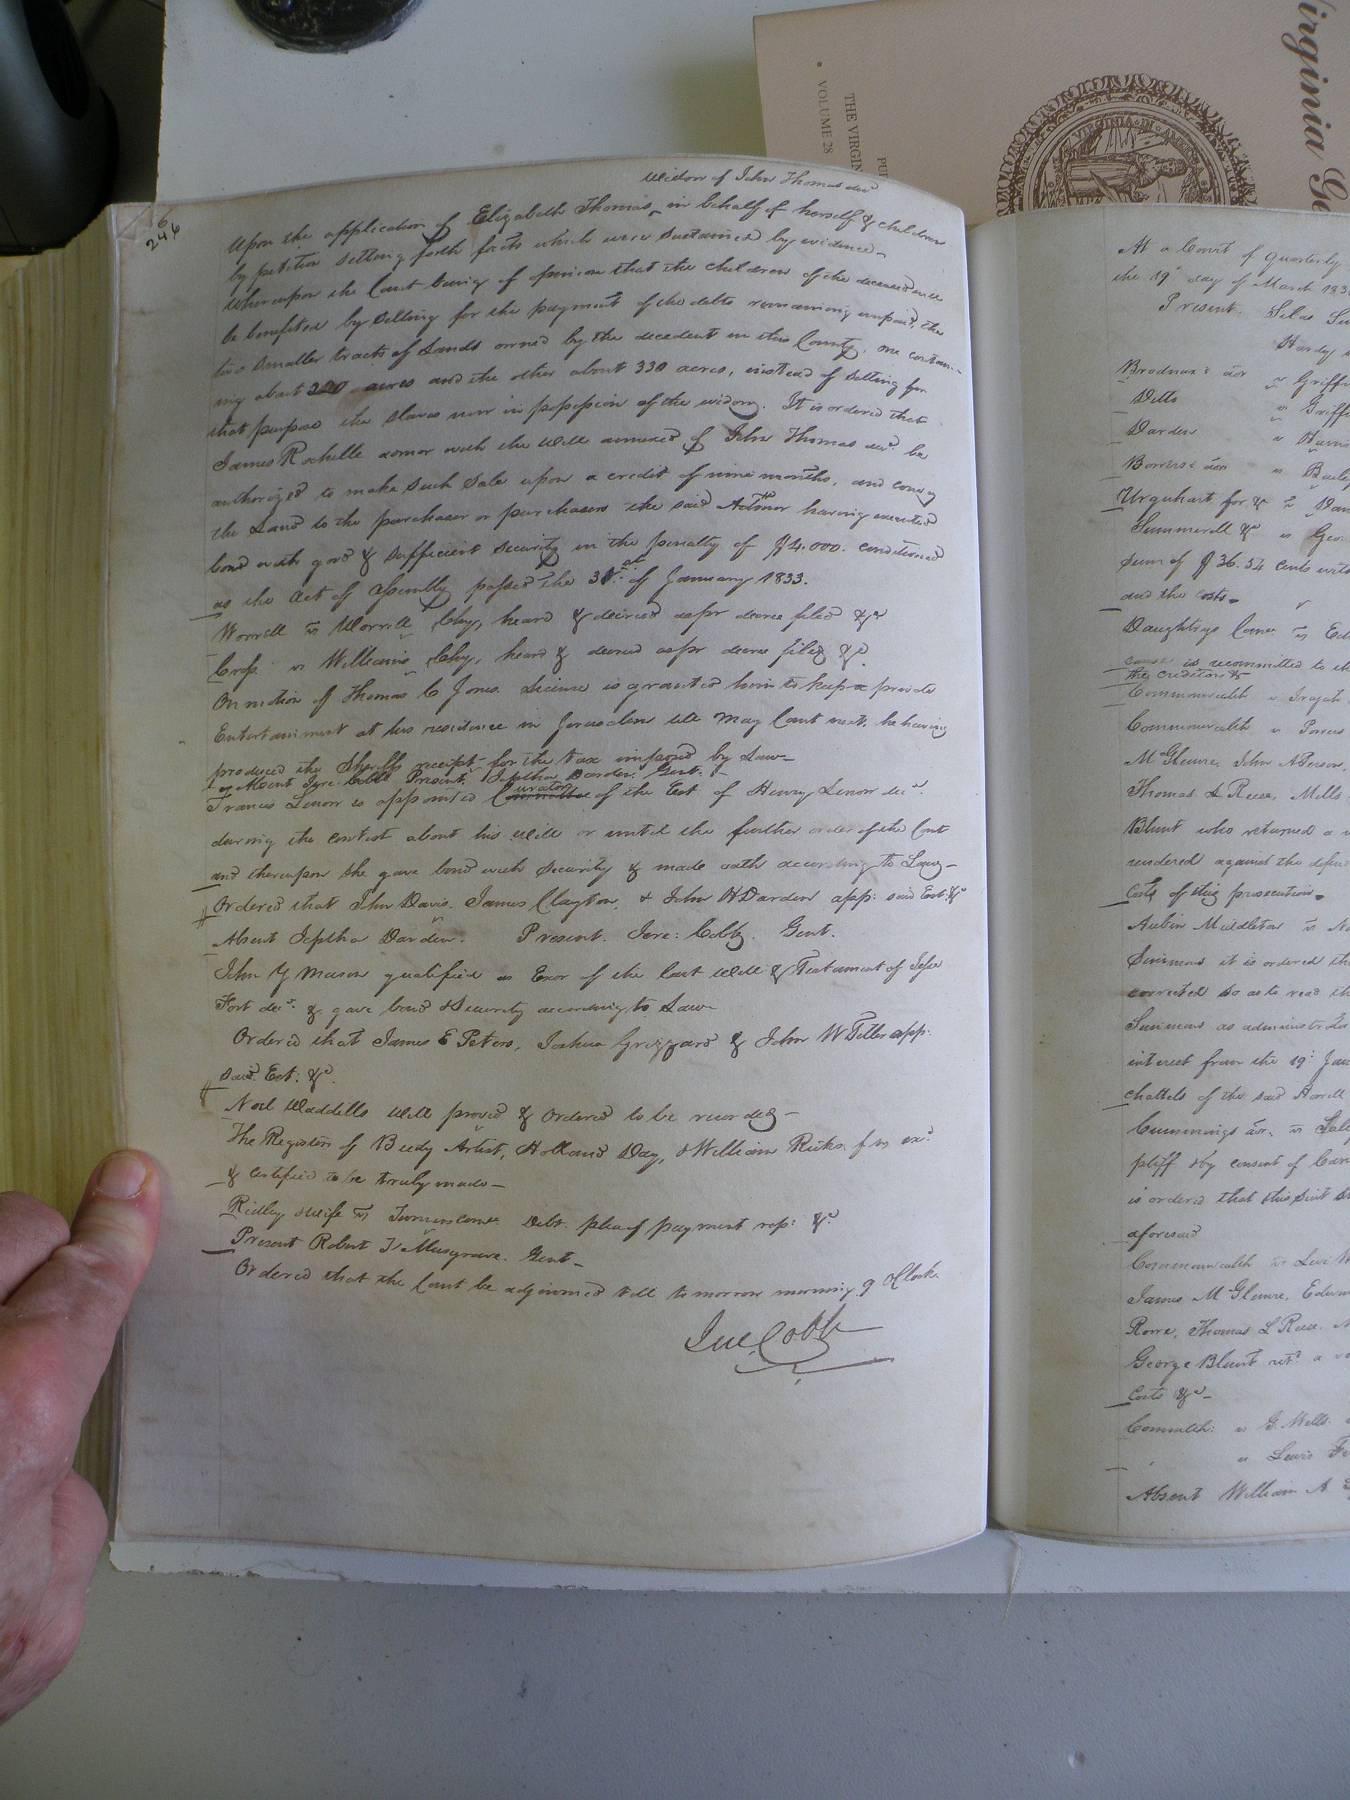 246
widow of John Thomas decd
Upon the application of Elizabeth Thomas, in behalf of herself & children
by petition setting forth facts which were sustained by evidence
whereupon the Court being of opinion that the children of the deceased will
be benefited by selling for the payment of the debts remaining unpaid, the
two smaller tracts of Lands owned by the decedent in this County, one contain-
ing about 220 acres and the other about 330 acres, instead of selling for
that purpose the slaves now in possession of the widow. It is ordered that
James Rochelle admor with the will annexed of John Thomas decd. be
authorized to make such sale upon a credit of nine months, and convey
the Land to the purchaser or purchasers the said Admor having executed
bond with good & sufficient security in the penalty of $4.000. conditioned
as the act of Assembly passed the 31st of January 1833.
Worrell vs Worrell Chy, heard & decreed as pr decree filed &c
vs Williams Chy, heard & decreed as pr decree filed &c.
On motion of Thomas C Jones. License is granted him to keep a private
Entertainment at his residence in Jerusalem till May Court next. he having
produced the Sheriffs receipt for the tax imposed by Law
Absent Jere: Cobb Present, Jeptha Darden. Gent.
Francis Lenow is appointed Curator of the Est of Henry Lenow decd.
during the contest about his will or until the further order of the Court
and thereupon she gave bond with security & made oath according to Law
Ordered that John Davis. James Clayton, & John H Darden app: said Est: &c
Absent Jeptha Darden. Present. Jere: Cobb. Gent.
John Y Mason qualified as Exor of the last will & Testament of Jesse
Fort decd. & gave bond & Security according to Law
Ordered that James E Peters, Joshua Grizzard & John W Teller app:
said Est: &c.
Noel Waddells will proved & Ordered to be recorded
The Registers of Artist, Holland Day, & William Ricks. f ns exd.
& certified to be truly made
Ridley & wife vs Debt. plea of payment rep: &c
Present Robert Musgrave. Gent
Ordered that the Court be adjourned till tomorrow morning 9 OClock
Jere Cobb
At a Court of Quarterly
the 19th day of March 183
Present. Silas
Hardy
Brodnax admr vs Griffi
Ditto vs Griff
Darden vs Harris
vs
Urquhart for &c vs Dan
Summerell &c vs Geo:
sum of $36.54 cents with
and the costs
Daughtrys Comee vs Ed
cause is recommitted to th
the creditors &c
Commonwealth vs
Commonwealth vs
McGlemre, John
Thomas L Reese, Mills
Blunt who returned a v
rendered against the defen
Costs of this prosecution
Aubin Middleton vs
Simmons it is ordered th
corrected so as to read th
Simmons as administrator
interest from the 19th Jan
chattels of the said Howell
Cummings admr. vs
pltff & by consent of
is ordered that this suit
aforesaid
Commonwealth vs Levi
James McGlemre, Edw
Rowe, Thomas L Reese.
George Blunt retd a v
Costs &c
Commlth: vs G. Wells.
vs Lewis
Absent William A
irginia Ge
THE VIRGIN
VOLUME 28
PU